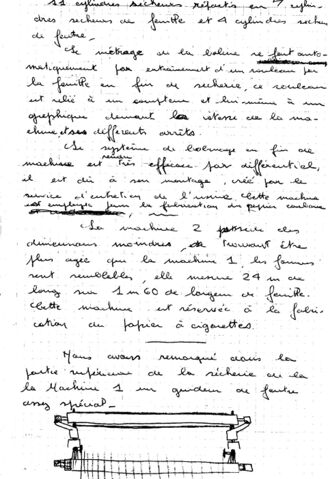 11 cylindres sécheurs répartis en 7 cylin-
dres sécheurs de feuille et 4 cylindres séche
de feutre.
Le métrage de la bobine se fait auto-
matiquement par entraînement d'un rouleau par
la feuille en fin de sécherie, ce rouleau
est relié à un compteur et lui-même à un
graphique donnant la vitesse de la ma-
chine et ses différents arrêts.
Le système de bobinage en fin de
machine est très efficace par différentiel,
il est dû à son montage, créé par le
service d'entretien de l'usine. Cette machine
est employée pour la fabrication du papier carbone
La machine 2 possède des
dimensions moindres, trouvant être
plus âgée que la machine 1, les formes
sont semblables, elle mesure 24 m de
long sur 1 m 60 de largeur de feuille.
Cette machine est réservée à la fabri-
cation du papier à cigarettes.
Nous avons remarqué dans la
partie supérieure de la sécherie de la
la Machine 1 un guideur de feutre
assez spécial.